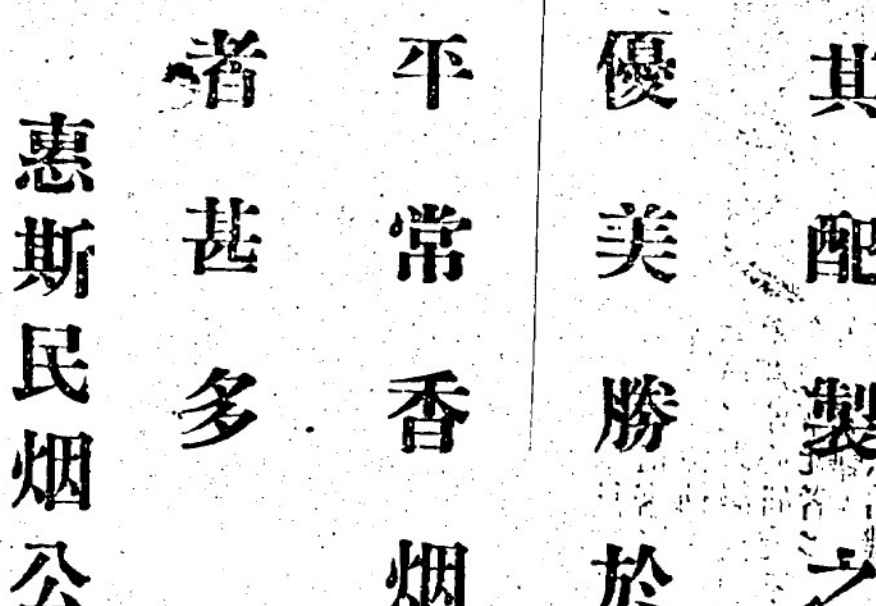 其配製之
優美勝於
平常香烟
者甚多
惠斯民烟公